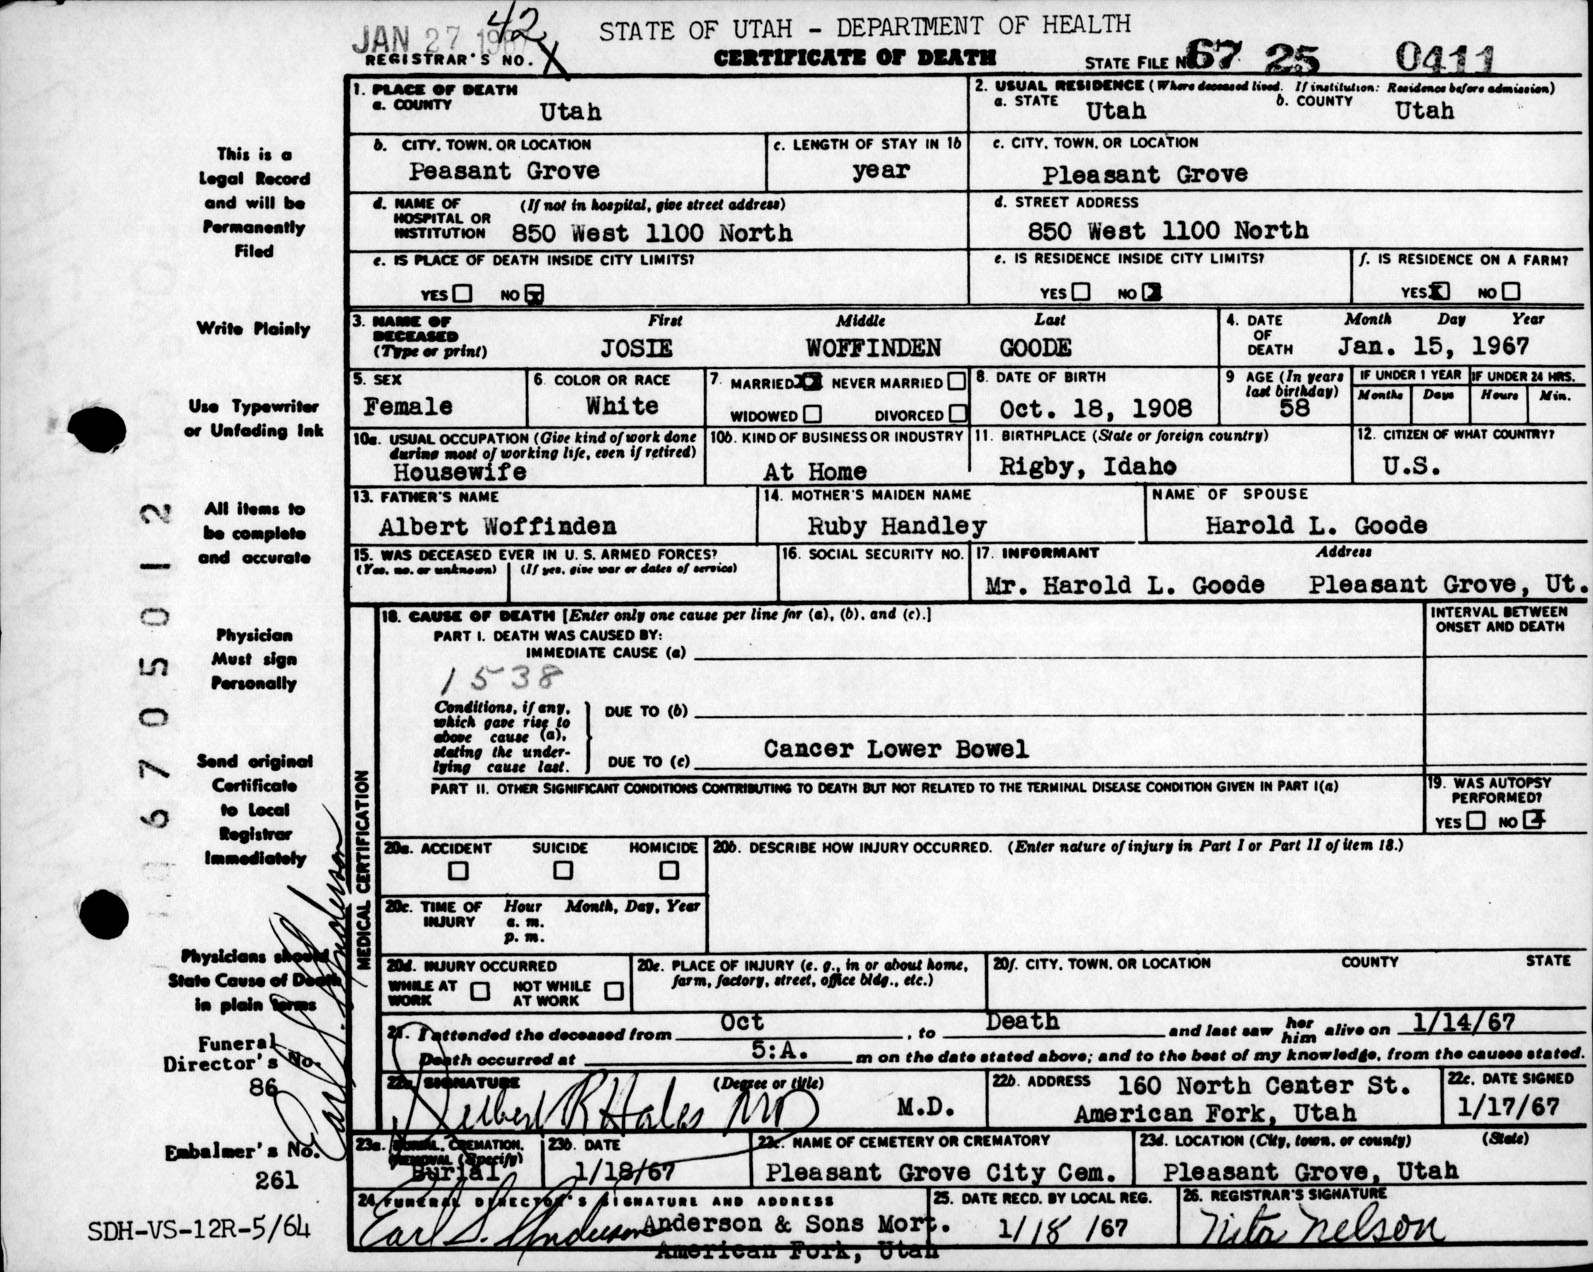 JAN 27 1967 42
STATE OF UTAH - DEPARTMENT OF HEALTH
REGISTRAR'S NO. X
CERTIFICATE OF DEATH
STATE FILE NO. 67 25 0411
This is a
Legal Record
and will be
Permanently
Filed
Write Plainly
Use Typewriter
or Unfading Ink
All items to
be complete
and accurate
Physician
Must sign
Personally
Send original
Certificate
to Local
Registrar
Immediately
Physicians should
State Cause of Death
in plain terms
Funeral
Director's No.
86
Embalmer's No.
261
Earl S. Anderson
06705012
SDH-VS-12R-5/64
1. PLACE OF DEATH
a. COUNTY
Utah
2. USUAL RESIDENCE (Where deceased lived. If institution: Residence before admission)
a. STATE
Utah
b. COUNTY
Utah
b. CITY, TOWN, OR LOCATION
Peasant Grove
c. LENGTH OF STAY IN 1b
year
c. CITY, TOWN, OR LOCATION
Pleasant Grove
d. NAME OF HOSPITAL OR INSTITUTION
(If not in hospital, give street address)
850 West 1100 North
d. STREET ADDRESS
850 West 1100 North
e. IS PLACE OF DEATH INSIDE CITY LIMITS?
YES NO X
e. IS RESIDENCE INSIDE CITY LIMITS?
YES NO X
f. IS RESIDENCE ON A FARM?
YES X NO
3. NAME OF
DECEASED
(Type or print)
First Middle Last
JOSIE WOFFINDEN GOODE
4. DATE
OF
DEATH
Month Day Year
Jan. 15, 1967
5. SEX
Female
6. COLOR OR RACE
White
7. MARRIED X NEVER MARRIED
WIDOWED DIVORCED
8. DATE OF BIRTH
Oct. 18, 1908
9 AGE (In years
last birthday)
58
IF UNDER 1 YEAR IF UNDER 24 HRS.
Months Days Hours Min.
10a. USUAL OCCUPATION (Give kind of work done
during most of working life, even if retired)
Housewife
10b. KIND OF BUSINESS OR INDUSTRY
At Home
11. BIRTHPLACE (State or foreign country)
Rigby, Idaho
12. CITIZEN OF WHAT COUNTRY?
U.S.
13. FATHER'S NAME
Albert Woffinden
14. MOTHER'S MAIDEN NAME
Ruby Handley
NAME OF SPOUSE
Harold L. Goode
15. WAS DECEASED EVER IN U. S. ARMED FORCES?
(Yes, no, or unknown) (If yes, give war or dates of service)
16. SOCIAL SECURITY NO.
17. INFORMANT Address
Mr. Harold L. Goode Pleasant Grove, Ut.
MEDICAL CERTIFICATION
18. CAUSE OF DEATH [Enter only one cause per line for (a), (b), and (c).]
INTERVAL BETWEEN
ONSET AND DEATH
PART I. DEATH WAS CAUSED BY:
IMMEDIATE CAUSE (a)
1538
Conditions, if any,
which gave rise to
above cause (a),
stating the under-
lying cause last.
DUE TO (b)
DUE TO (c) Cancer Lower Bowel
PART II. OTHER SIGNIFICANT CONDITIONS CONTRIBUTING TO DEATH BUT NOT RELATED TO THE TERMINAL DISEASE CONDITION GIVEN IN PART I(a)
19. WAS AUTOPSY
PERFORMED?
YES NO X
20a. ACCIDENT SUICIDE HOMICIDE
20b. DESCRIBE HOW INJURY OCCURRED. (Enter nature of injury in Part I or Part II of item 18.)
20c. TIME OF
INJURY
Hour Month, Day, Year
a. m.
p. m.
20d. INJURY OCCURRED
WHILE AT
WORK
NOT WHILE
AT WORK
20e. PLACE OF INJURY (e. g., in or about home,
farm, factory, street, office bldg., etc.)
20f. CITY, TOWN, OR LOCATION COUNTY STATE
21. I attended the deceased from Oct, to Death and last saw her him alive on 1/14/67
Death occurred at 5:A. m on the date stated above; and to the best of my knowledge, from the causes stated.
22a SIGNATURE (Degree or title)
Delbert R Hales MD M.D.
22b. ADDRESS 160 North Center St.
American Fork, Utah
22c. DATE SIGNED
1/17/67
23a. BURIAL, CREMATION,
REMOVAL (Specify)
Burial
23b. DATE
1/18/67
23c. NAME OF CEMETERY OR CREMATORY
Pleasant Grove City Cem.
23d. LOCATION (City, town, or county) (State)
Pleasant Grove, Utah
24 FUNERAL DIRECTOR'S SIGNATURE AND ADDRESS
Earl S. Anderson Anderson & Sons Mort.
American Fork, Utah
25. DATE RECD. BY LOCAL REG.
1/18/67
26. REGISTRAR'S SIGNATURE
Nita Nelson